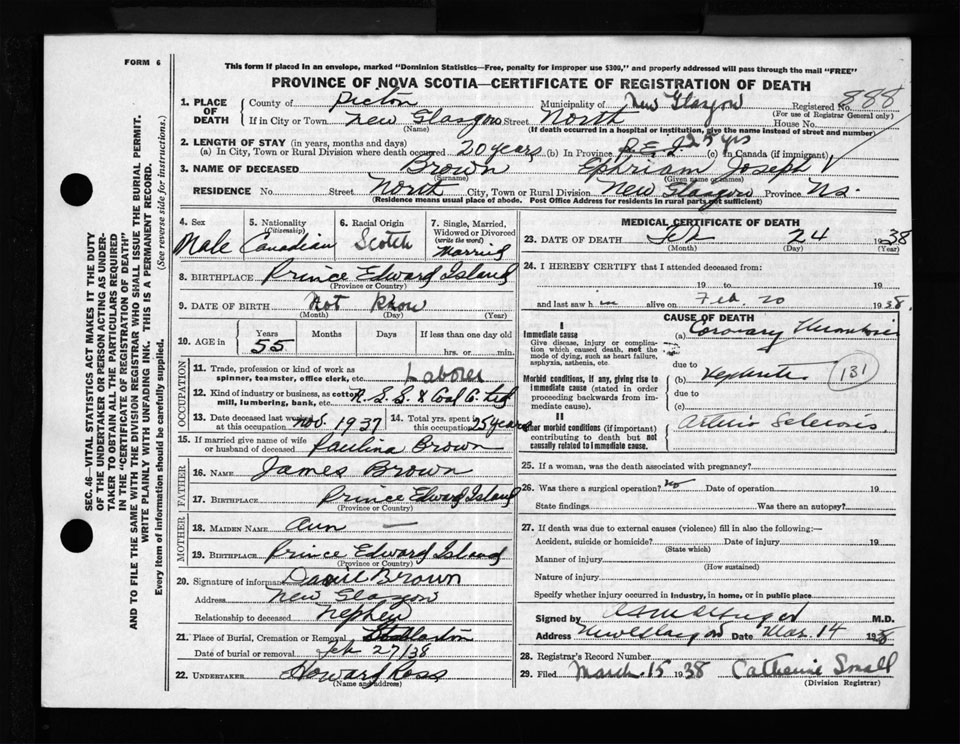 FORM 6
This form if placed in an envelope, marked "Dominion Statistics—Free, penalty for improper use $300," and properly addressed will pass through the mail "FREE"
PROVINCE OF NOVA SCOTIA—CERTIFICATE OF REGISTRATION OF DEATH
1. PLACE OF DEATH County of Pictou Municipality of New Glasgow Registered No. 888
(For use of Registrar General only)
If in City or Town New Glasgow Street North House No.
(Name) (If death occurred in a hospital or institution, give the name instead of street and number)
2. LENGTH OF STAY (in years, months and days)
(a) In City, Town or Rural Division where death occurred 20 years (b) In Province 25 yrs (c) In Canada (if immigrant)
3. NAME OF DECEASED Brown Ephriam Joseph
(Surname) (Given name or names)
RESIDENCE No. Street North City, Town or Rural Division New Glasgow Province N.S.
(Residence means usual place of abode. Post Office Address for residents in rural parts not sufficient)
4. Sex 5. Nationality (Citizenship) 6. Racial Origin 7. Single, Married, Widowed or Divorced (write the word)
Male Canadian Scotch
8. BIRTHPLACE Prince Edward Island
(Province or Country)
9. DATE OF BIRTH Not Know
(Month) (Day) (Year)
10. AGE in Years Months Days If less than one day
55 hrs. or min.
OCCUPATION
11. Trade, profession or kind of work as spinner, teamster, office clerk, etc. Laborer
12. Kind of industry or business, as cotton mill, lumbering, bank, etc. N.S.S. & Coal Co. Ltd
13. Date deceased last worked at this occupation 1937 14. Total yrs. spent in this occupation 25 years
15. If married give name of wife or husband of deceased Paulina Brown
FATHER
16. NAME James Brown
17. BIRTHPLACE Prince Edward Island
(Province or Country)
MOTHER
18. MAIDEN NAME Ann —
19. BIRTHPLACE Prince Edward Island
(Province or Country)
20. Signature of informant Brown
Address New Glasgow
Relationship to deceased Nephew
21. Place of Burial, Cremation or Removal Stellarton
Date of burial or removal Feb 27/38
22. UNDERTAKER Howard Ross
(Name and address)
MEDICAL CERTIFICATE OF DEATH
23. DATE OF DEATH Feb 24 1938
(Month) (Day) (Year)
24. I HEREBY CERTIFY that I attended deceased from:
19 to 19
and last saw h im alive on Feb. 20 1938.
CAUSE OF DEATH
I
Immediate cause (a) Coronary Thrombosis
Give disease, injury or complication which caused death, not the mode of dying, such as heart failure, asphyxia, asthenia, etc.
due to
Morbid conditions, if any, giving rise to immediate cause (stated in order proceeding backwards from immediate cause). (b) Nephritis 131
due to
(c)
II
Other morbid conditions (if important) contributing to death but not causally related to immediate cause. Arterio Sclerosis.
25. If a woman, was the death associated with pregnancy?
26. Was there a surgical operation? No Date of operation 19
State findings Was there an autopsy?
27. If death was due to external causes (violence) fill in also the following:—
Accident, suicide or homicide? Date of injury 19
(State which)
Manner of injury
(How sustained)
Nature of injury
Specify whether injury occurred in industry, in home, or in public place
Signed by M.D.
Address New Glasgow Date Mar. 14 1938
28. Registrar's Record Number
29. Filed March 15 1938 Catherine Small
(Division Registrar)
SEC. 46—VITAL STATISTICS ACT MAKES IT THE DUTY
OF THE UNDERTAKER OR PERSON ACTING AS UNDER-
TAKER TO OBTAIN ALL THE PARTICULARS REQUIRED
IN THE "CERTIFICATE OF REGISTRATION OF DEATH"
AND TO FILE THE SAME WITH THE DIVISION REGISTRAR WHO SHALL ISSUE THE BURIAL PERMIT.
WRITE PLAINLY WITH UNFADING INK. THIS IS A PERMANENT RECORD.
Every item of information should be carefully supplied. (See reverse side for instructions.)